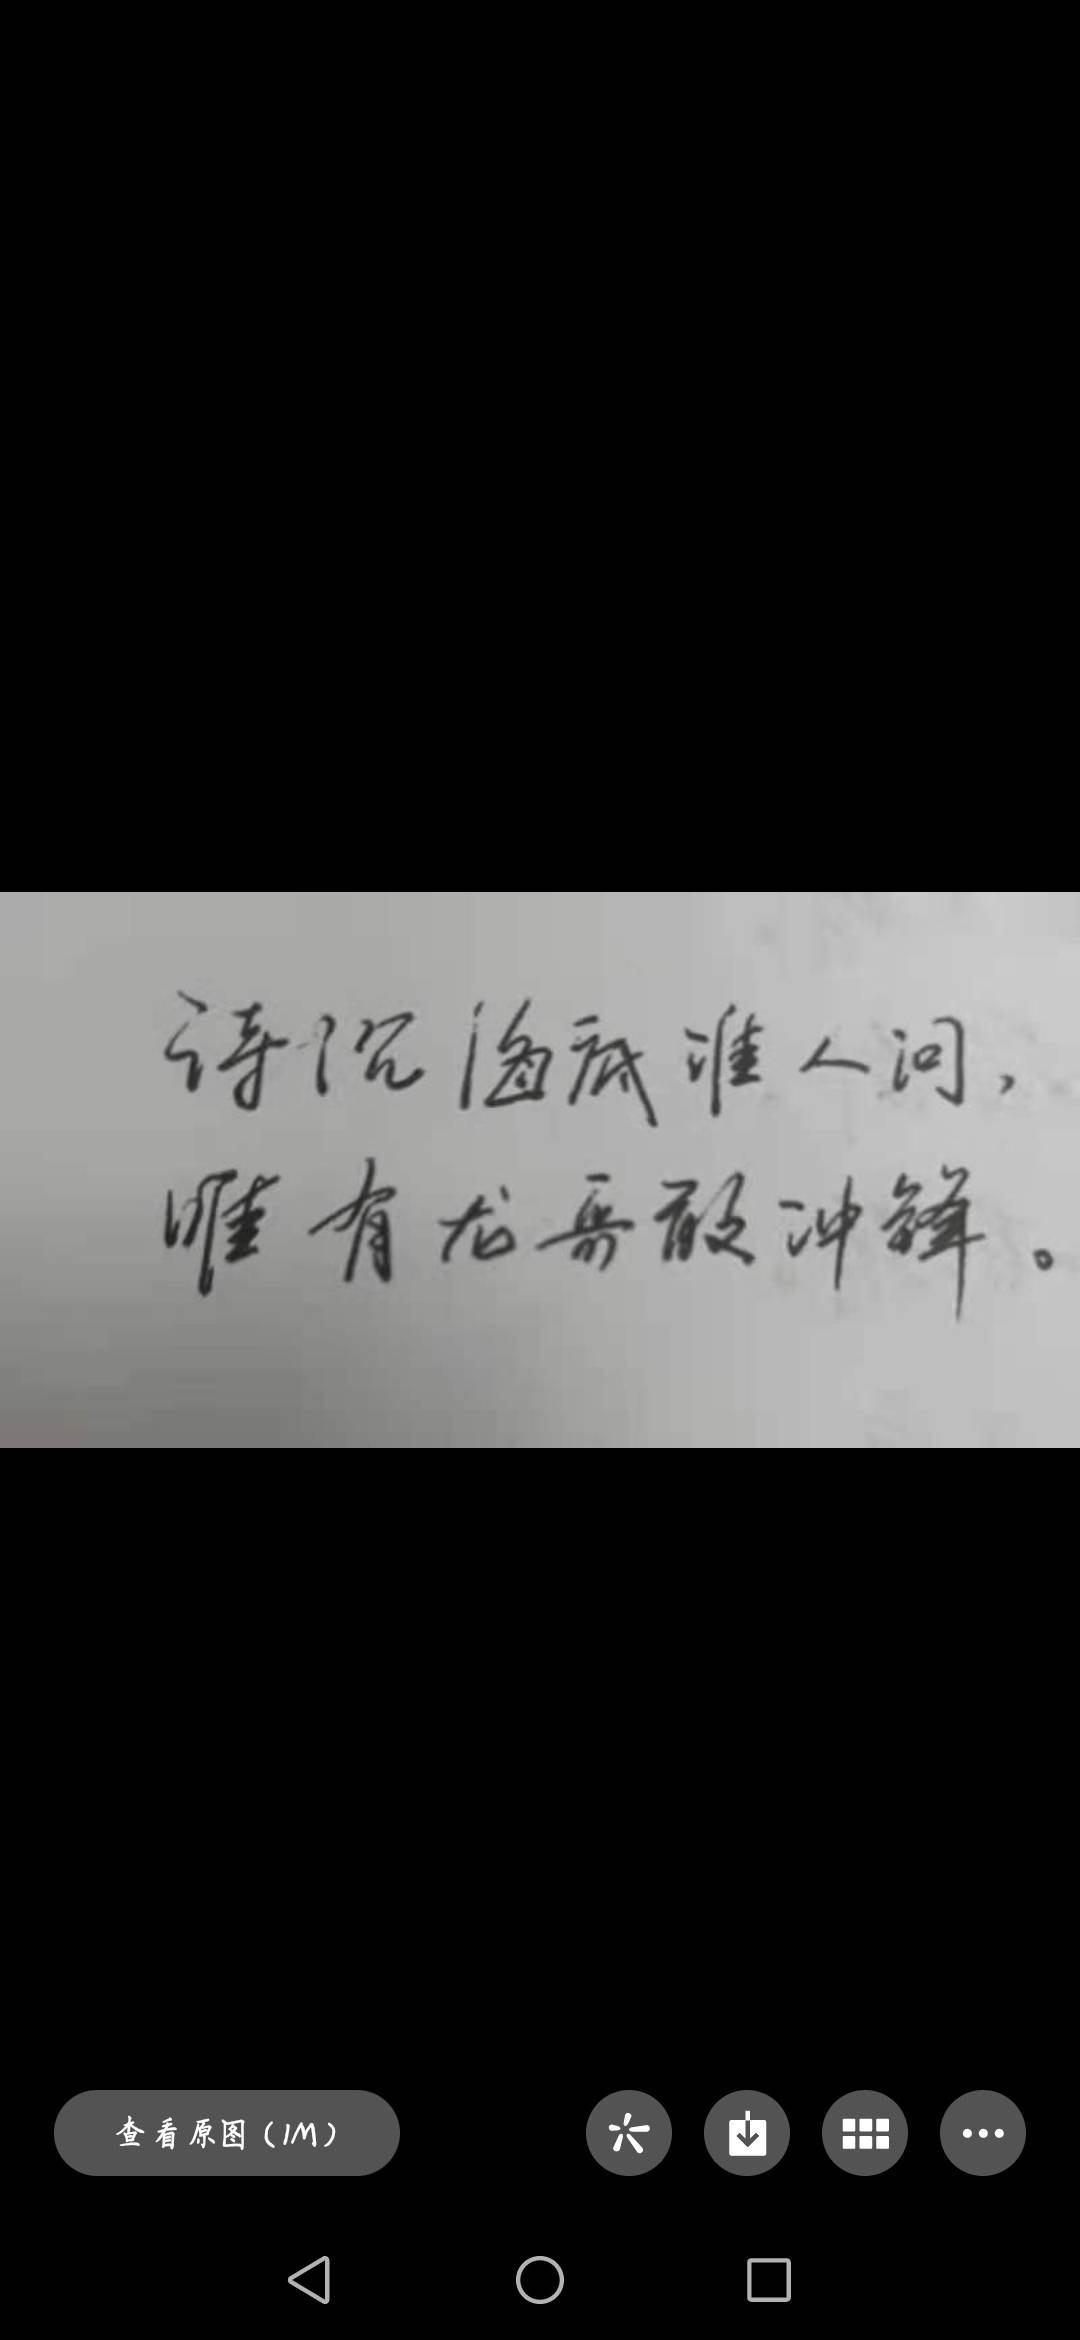 诗沉海底谁人问，
唯有龙哥敢冲锋。
查看原图（1M）